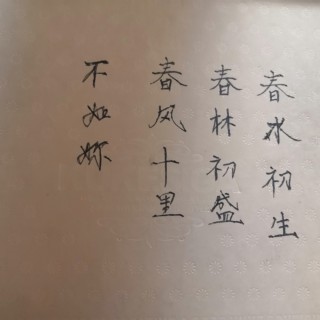 春水初生
春林初盛
春风十里
不如妳